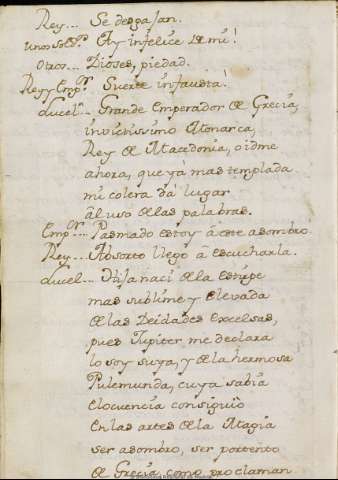 Rey... Se desgajan.
Unos Sold.s Ay infelice de mi!
Otros... Dioses, piedad.
Rey y Emp.r Suerte infausta!
Lucel... Grande Emperador de Grecia,
invictissimo Monarca,
Rey de Macedonia, oidme
ahora, que ya mas templada
mi colera da lugar
al uso de las palabras.
Emp.r... Pasmado estoy â este asombro.
Rey... Absorto llego â escucharla.
Lucel... Hija naci de la Estirpe
mas sublime y elevada
de las Deidades Excelsas,
pues Jupiter me declara
lo soy suya, y de la hermosa
Pulemunda, cuya sabia
elocuencia consiguiò
en las artes de la Magia
ser asombro, ser portento
de Grecia, como proclaman